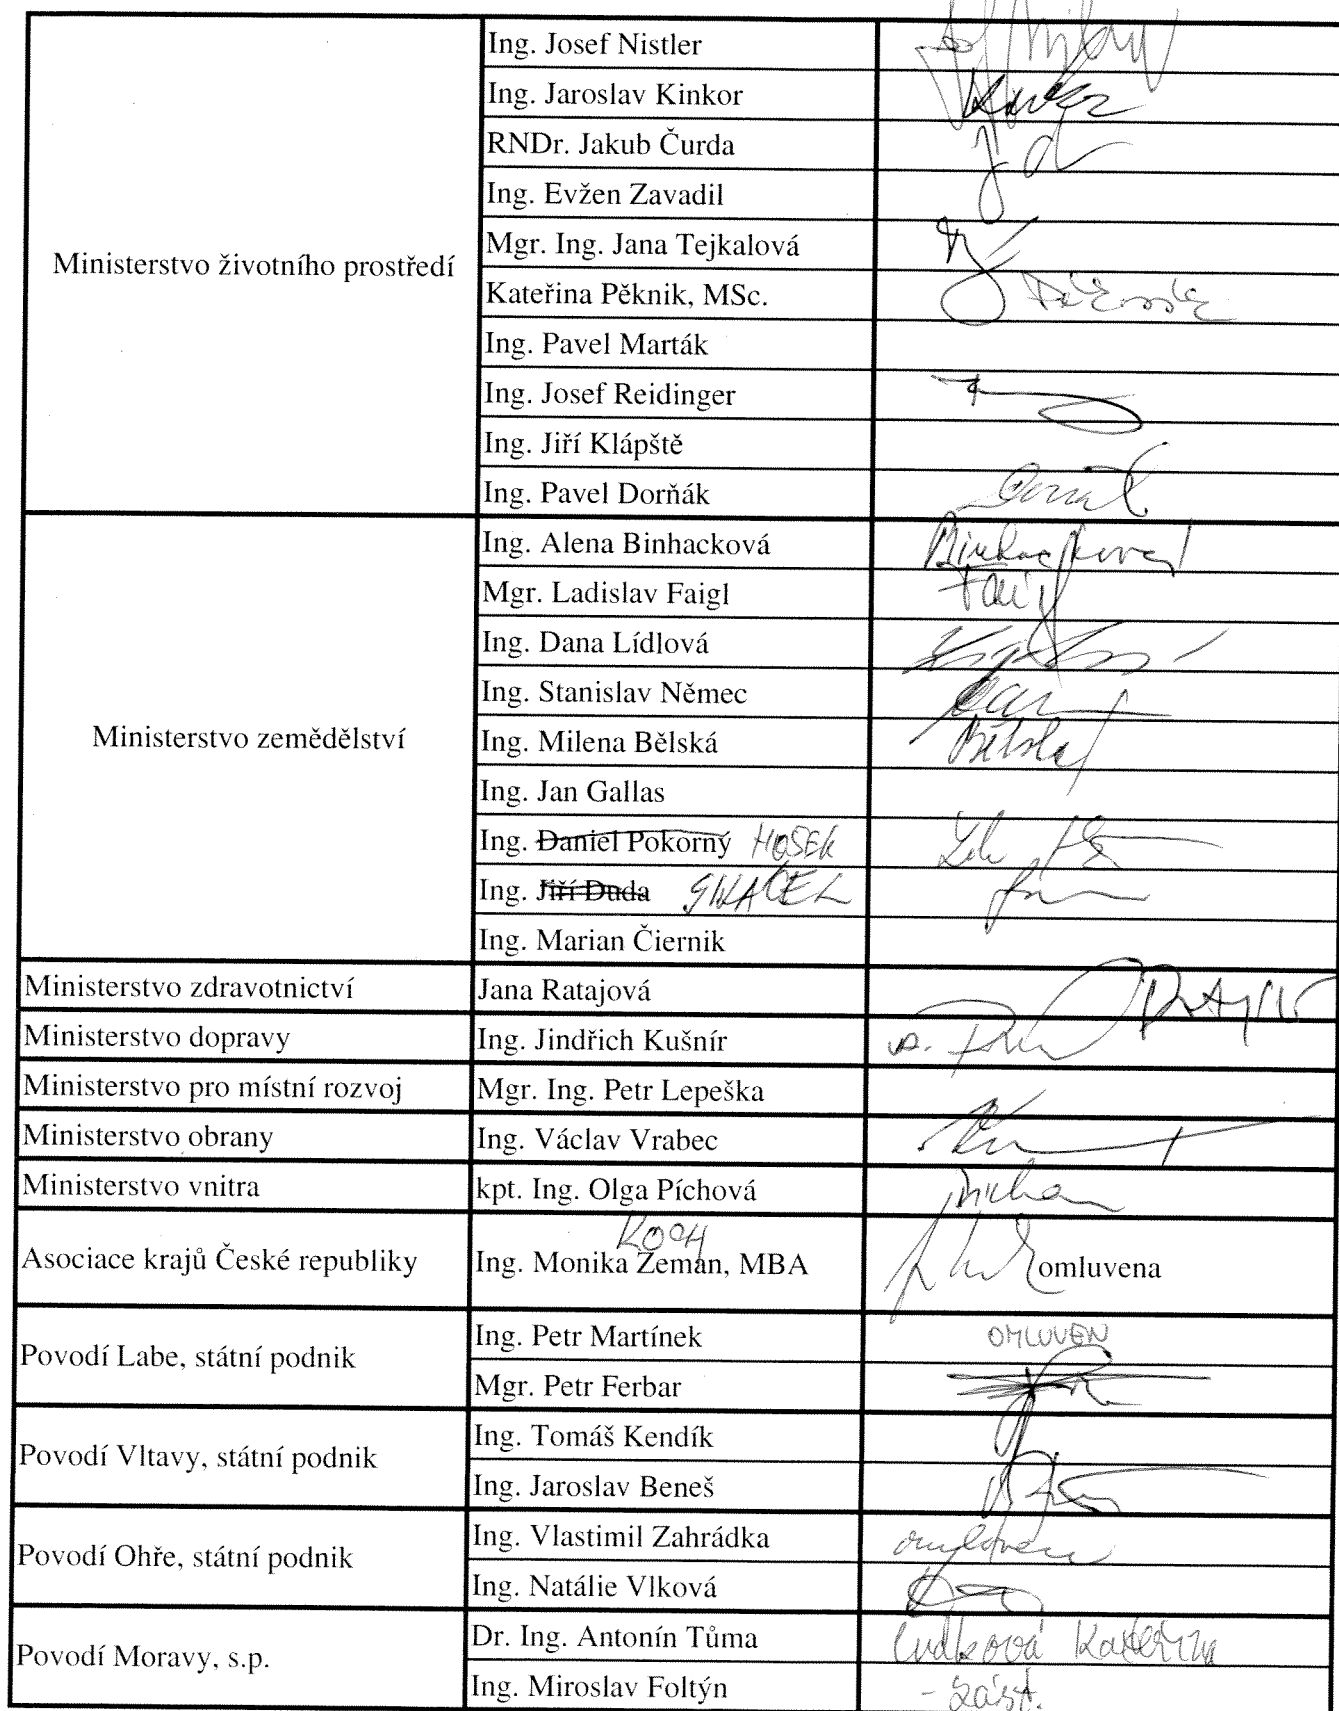 Ministerstvo životního prostředí
Ing. Josef Nistler
Ing. Jaroslav Kinkor
RNDr. Jakub Čurda
Ing. Evžen Zavadil
Mgr. Ing. Jana Tejkalová
Kateřina Pěknik, MSc.
Ing. Pavel Marták
Ing. Josef Reidinger
Ing. Jiří Klápště
Ing. Pavel Dorňák
Ministerstvo zemědělství
Ing. Alena Binhacková
Mgr. Ladislav Faigl
Ing. Dana Lídlová
Ing. Stanislav Němec
Ing. Milena Bělská
Ing. Jan Gallas
Ing. Daniel Pokorný HOŠEK
Ing. Jiří Duda
Ing. Marian Čiernik
Ministerstvo zdravotnictví Jana Ratajová
Ministerstvo dopravy Ing. Jindřich Kušnír
Ministerstvo pro místní rozvoj Mgr. Ing. Petr Lepeška
Ministerstvo obrany Ing. Václav Vrabec
Ministerstvo vnitra kpt. Ing. Olga Píchová
KOCH
Asociace krajů České republiky Ing. Monika Zeman, MBA omluvena
Povodí Labe, státní podnik
Ing. Petr Martínek OMLUVEN
Mgr. Petr Ferbar
Povodí Vltavy, státní podnik
Ing. Tomáš Kendík
Ing. Jaroslav Beneš
Povodí Ohře, státní podnik
Ing. Vlastimil Zahrádka omluven
Ing. Natálie Vlková
Povodí Moravy, s.p.
Dr. Ing. Antonín Tůma
Ing. Miroslav Foltýn - zást.